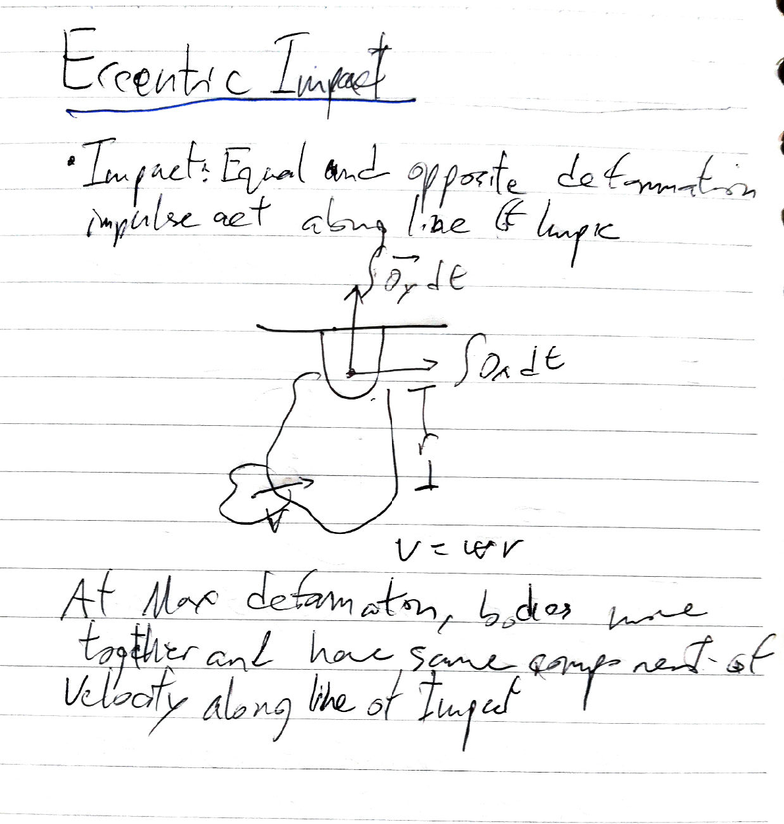 Eccentric Impact
• Impact: Equal and opposite deformation
impulse act along line of Impc
∫O⃗y dt
∫Ox dt
r
V
V = ωr
At Max deformaton, bodies move
together and have same component of
Velocity along line of Impact